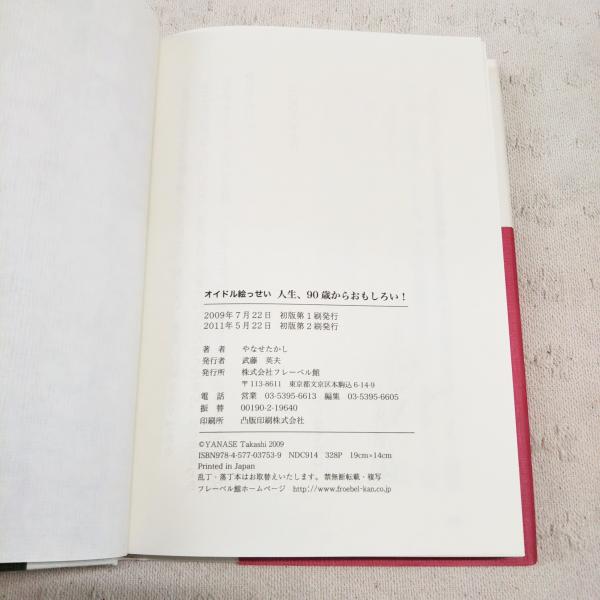 オイドル絵っせい 人生、90歳からおもしろい！
2009年7月22日 初版第1刷発行
2011年5月22日 初版第2刷発行
著者 やなせたかし
発行者 武藤 英夫
発行所 株式会社フレーベル館
〒113-8611 東京都文京区本駒込6-14-9
電話 営業 03-5395-6613 編集 03-5395-6605
振替 00190-2-19640
印刷所 凸版印刷株式会社
©YANASE Takashi 2009
ISBN978-4-577-03753-9 NDC914 328P 19cm×14cm
Printed in Japan
乱丁・落丁本はお取替えいたします。禁無断転載・複写
フレーベル館ホームページ http://www.froebel-kan.co.jp